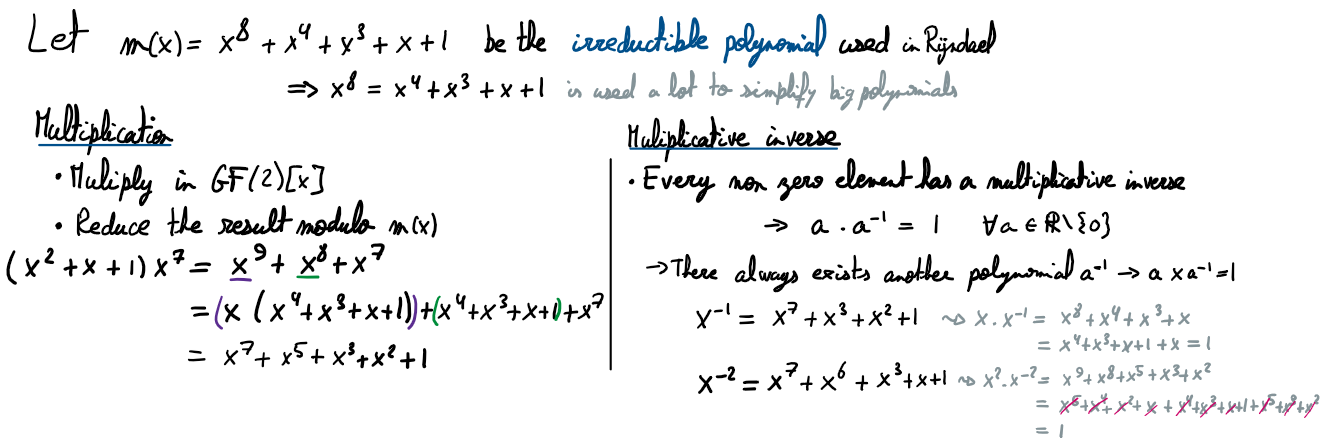 Let m(x) = x⁸ + x⁴ + x³ + x + 1 be the irreductible polynomial used in Rijndael
⇒ x⁸ = x⁴ + x³ + x + 1 is used a lot to simplify big polynomials
Multiplication
• Muliply in GF(2)[x]
• Reduce the result modulo m(x)
(x² + x + 1) x⁷ = x⁹ + x⁸ + x⁷
= (x (x⁴ + x³ + x + 1)) + (x⁴ + x³ + x + 1) + x⁷
= x⁷ + x⁵ + x³ + x² + 1
Muliplicative inverse
• Every non zero element has a multiplicative inverse
→ a . a⁻¹ = 1 ∀a ∈ ℝ\{0}
→ There always exists another polynomial a⁻¹ → a x a⁻¹ = 1
x⁻¹ = x⁷ + x³ + x² + 1 ⇝ x . x⁻¹ = x⁸ + x⁴ + x³ + x
= x⁴ + x³ + x + 1 + x = 1
x⁻² = x⁷ + x⁶ + x³ + x + 1 ⇝ x² . x⁻² = x⁹ + x⁸ + x⁵ + x³ + x²
= x⁵ + x⁴ + x² + x + x⁴ + x³ + x + 1 + x⁵ + x³ + x²
= 1